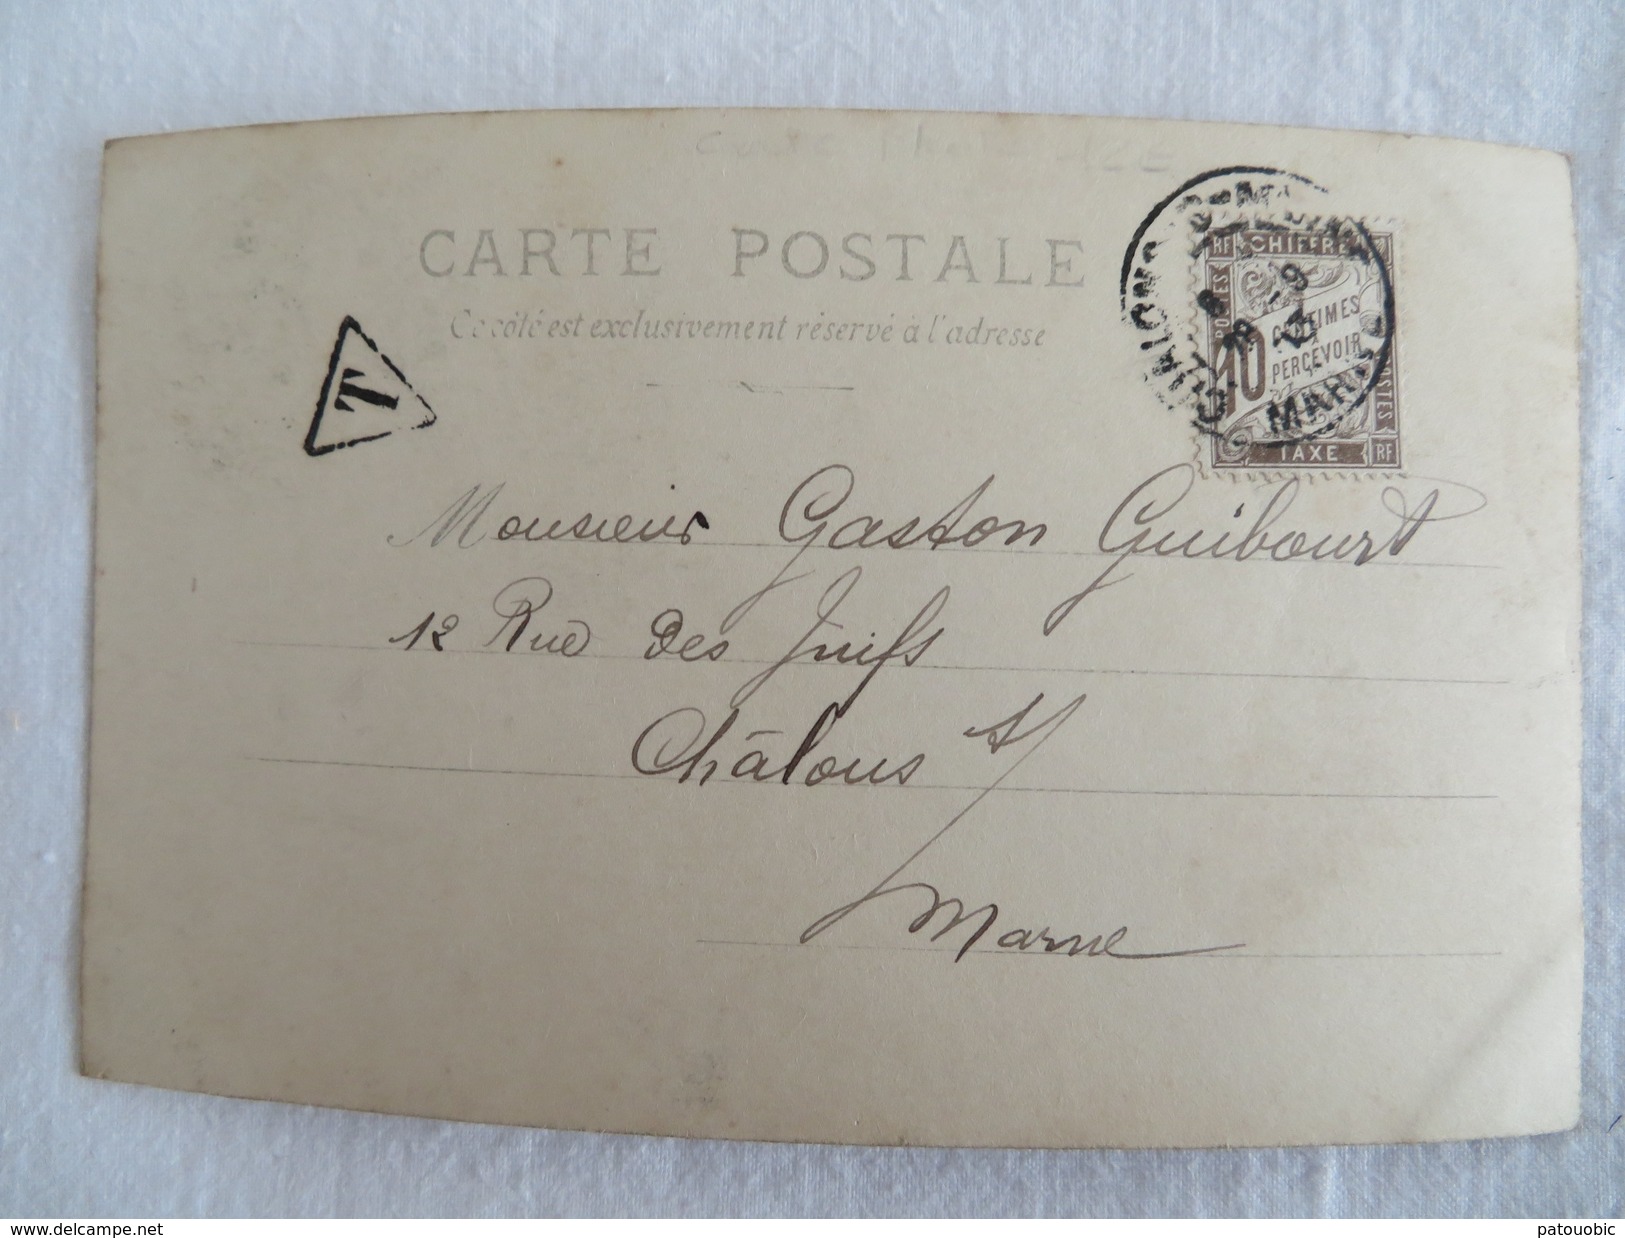 CARTE POSTALE
Ce côté est exclusivement réservé à l'adresse
T
RF CHIFFRE
POSTES
10 CENTIMES
A
PERCEVOIR
POSTES
TAXE RF
CHALONS-S-MARNE
MARNE
Monsieur Gaston Guibourt
12 Rue des Juifs
Châlons s/
Marne
www.delcampe.net
patouobic